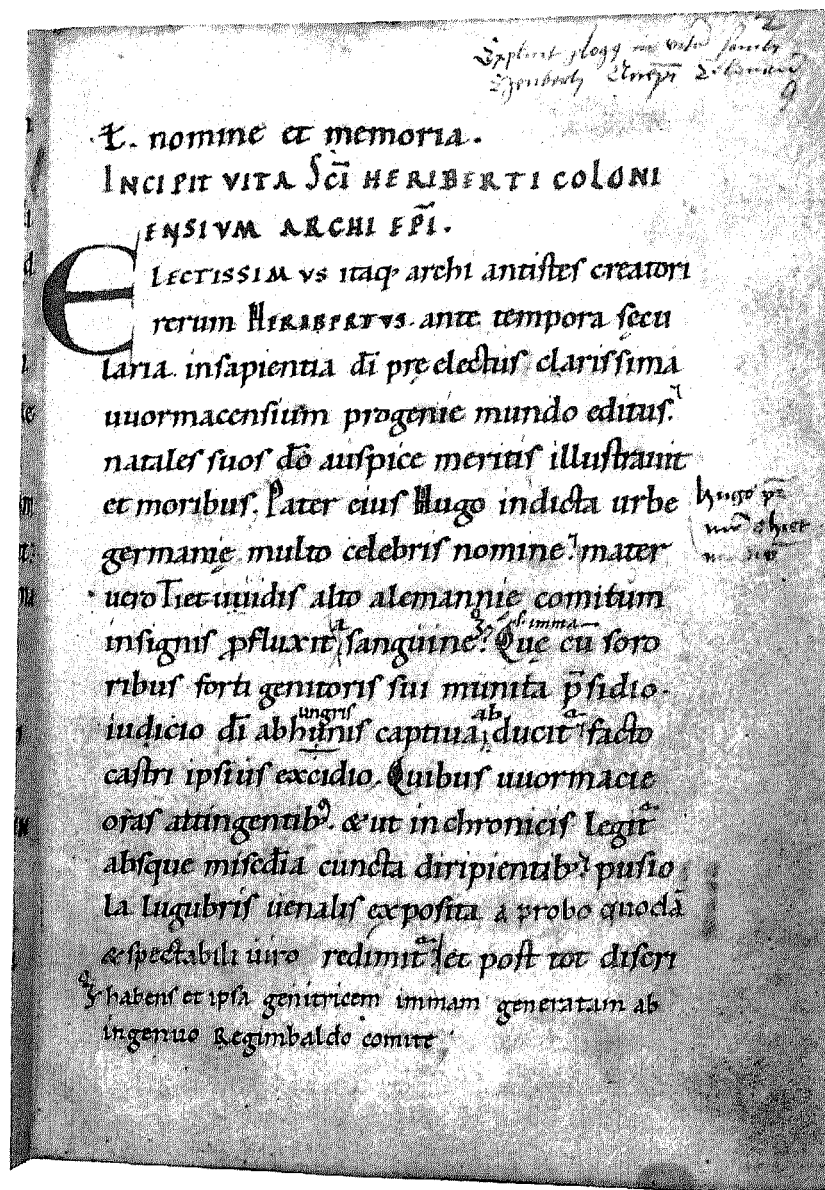 et nomine et memoria.
INCIPIT VITA SC̄I HERIBERTI COLONI
ENSIVM ARCHI EP̄I.
ELECTISSIMVS itaq; archi antistes creatori
rerum HERIBERTVS. ante tempora secu
laria. insapientia dī pręelectus clarissima
uuormacensium progenie mundo editus.
natales suos dō auspice meritis illustrauit
et moribus. Pater eius Hugo indicta urbe
germanię multo celebris nomine. mater
uero Tietuuidis alto alemannię comitum
insignis ꝓfluxit sanguine. Quę cū soro
imma
ribus forti genitoris sui munita p̄sidio.
iudicio dī abhunis captiua ducit facto
ungris ab
castri ipsius excidio. Quibus uuormacie
oras attingentib; & ut inchronicis legit
absque mis̄edia cuncta diripientib; pusio
la lugubris uenalis exposita a probo quodā
& spectabili uiro redimit et post tot discri
habens et ipsa genitricem immam generatam ab
ingenuo Regimbaldo comite
hugo